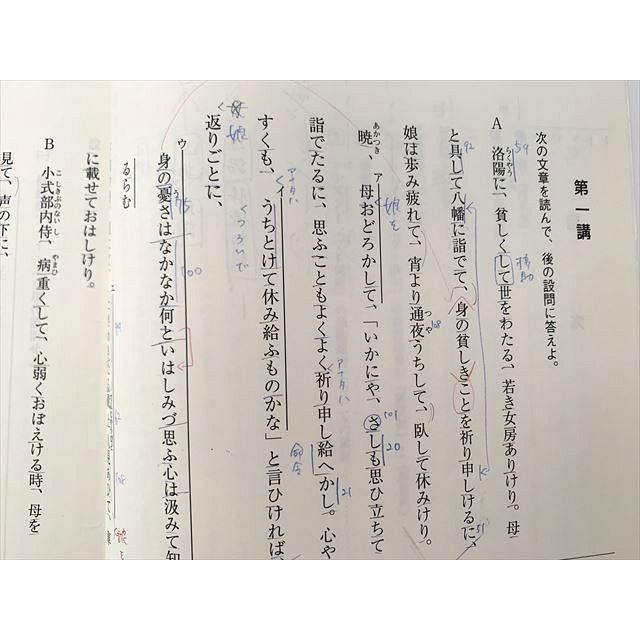 第一講
次の文章を読んで、後の設問に答えよ。
A　洛陽に、貧しくして世をわたる、若き女房ありけり。母
と具して八幡に詣でて、身の貧しきことを祈り申しけるに、
娘は歩み疲れて、宵より通夜うちして、臥して休みけり。
暁、母おどろかして、「いかにや、さしも思ひ立ちて
詣でたるに、思ふこともよくよく祈り申し給へかし。心や
すくも、うちとけて休み給ふものかな」と言ひければ、
返りごとに、
身の憂さはなかなか何といはしみづ思ふ心は汲みて知
るらむ
に載せておはしけり。
B　小式部内侍、病重くして、心弱くおぼえける時、母を
見て、声の下に、